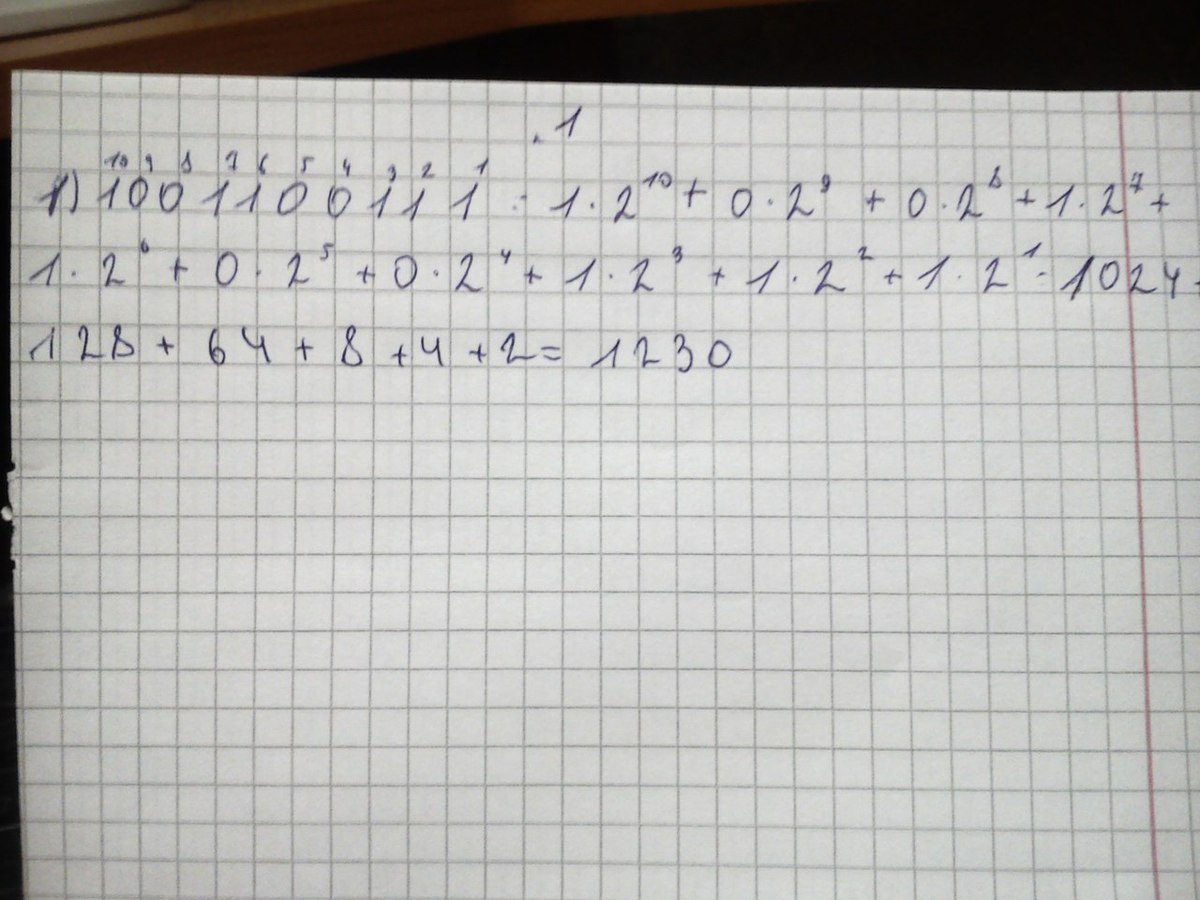 . 1
10 9 8 7 6 5 4 3 2 1
1) 1001100111 = 1·2¹⁰ + 0·2⁹ + 0·2⁸ + 1·2⁷ +
1·2⁶ + 0·2⁵ + 0·2⁴ + 1·2³ + 1·2² + 1·2¹ = 1024 +
128 + 64 + 8 + 4 + 2 = 1230